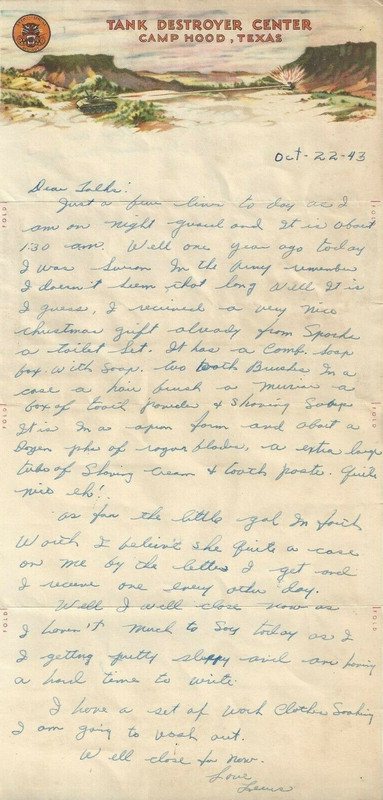 TANK DESTROYER CENTER
CAMP HOOD, TEXAS
Oct-22-43
Dear Folks:
Just a few lines to day as I
am on night guard and It is about
1:30 am. Well one year ago today
I was Sworn In the Army remember
I doesn't seem that long Well It is
I guess, I recieved a very nice
christmas grift already from
a toilet Set. It has a Comb. Soap
box. With Soap. two tooth Brushes In a
case a hair brush a Mirrior a
box of tooth powder & Shaving
It is In a form and about a
Dozen pks of razor blades, a extra large
tube of Shaving Cream & tooth paste. Quite
nice eh!.
as far the little gal In forth
Worth I believe't she Quite a case
on me by the letters I get and
I receive one every other day.
Well I well close now as
I haven't Much to Say today as I
I getting pretty sleppy and am having
a hard time to write.
I have a set of Work Clothes Soaking
I am going to wash out.
Well close for now.
Love
FOLD
FOLD
FOLD
FOLD
FOLD
FOLD